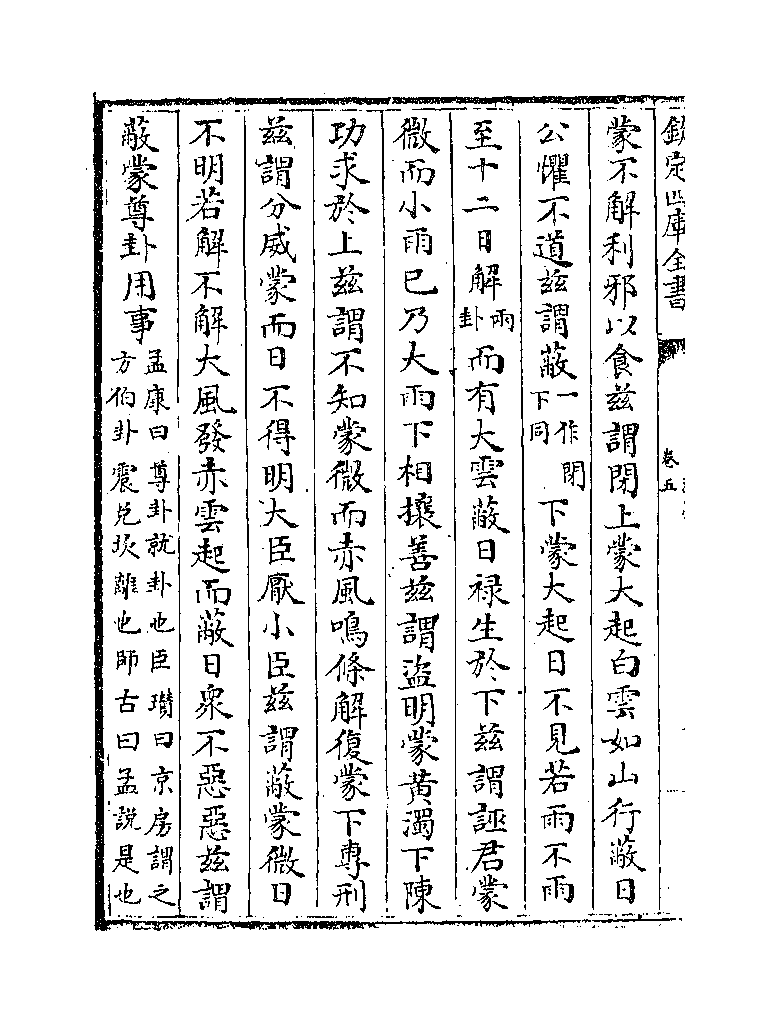 欽定四庫全書
卷五
蒙不解利邪以食茲謂閉上蒙大起白雲如山行蔽日
公懼不道茲謂蔽一作閉下同下蒙大起日不見若雨不雨
至十二日解雨卦而有大雲蔽日祿生於下茲謂誣君蒙
微而小雨已乃大雨下相攘善茲謂盜明蒙黃濁下陳
功求於上茲謂不知蒙微而赤風鳴條解復蒙下專刑
茲謂分威蒙而日不得明大臣厭小臣茲謂蔽蒙微日
不明若解不解大風發赤雲起而蔽日衆不惡惡茲謂
蔽蒙尊卦用事孟康曰尊卦就卦也臣瓚曰京房謂之方伯卦震兌坎離也師古曰孟說是也